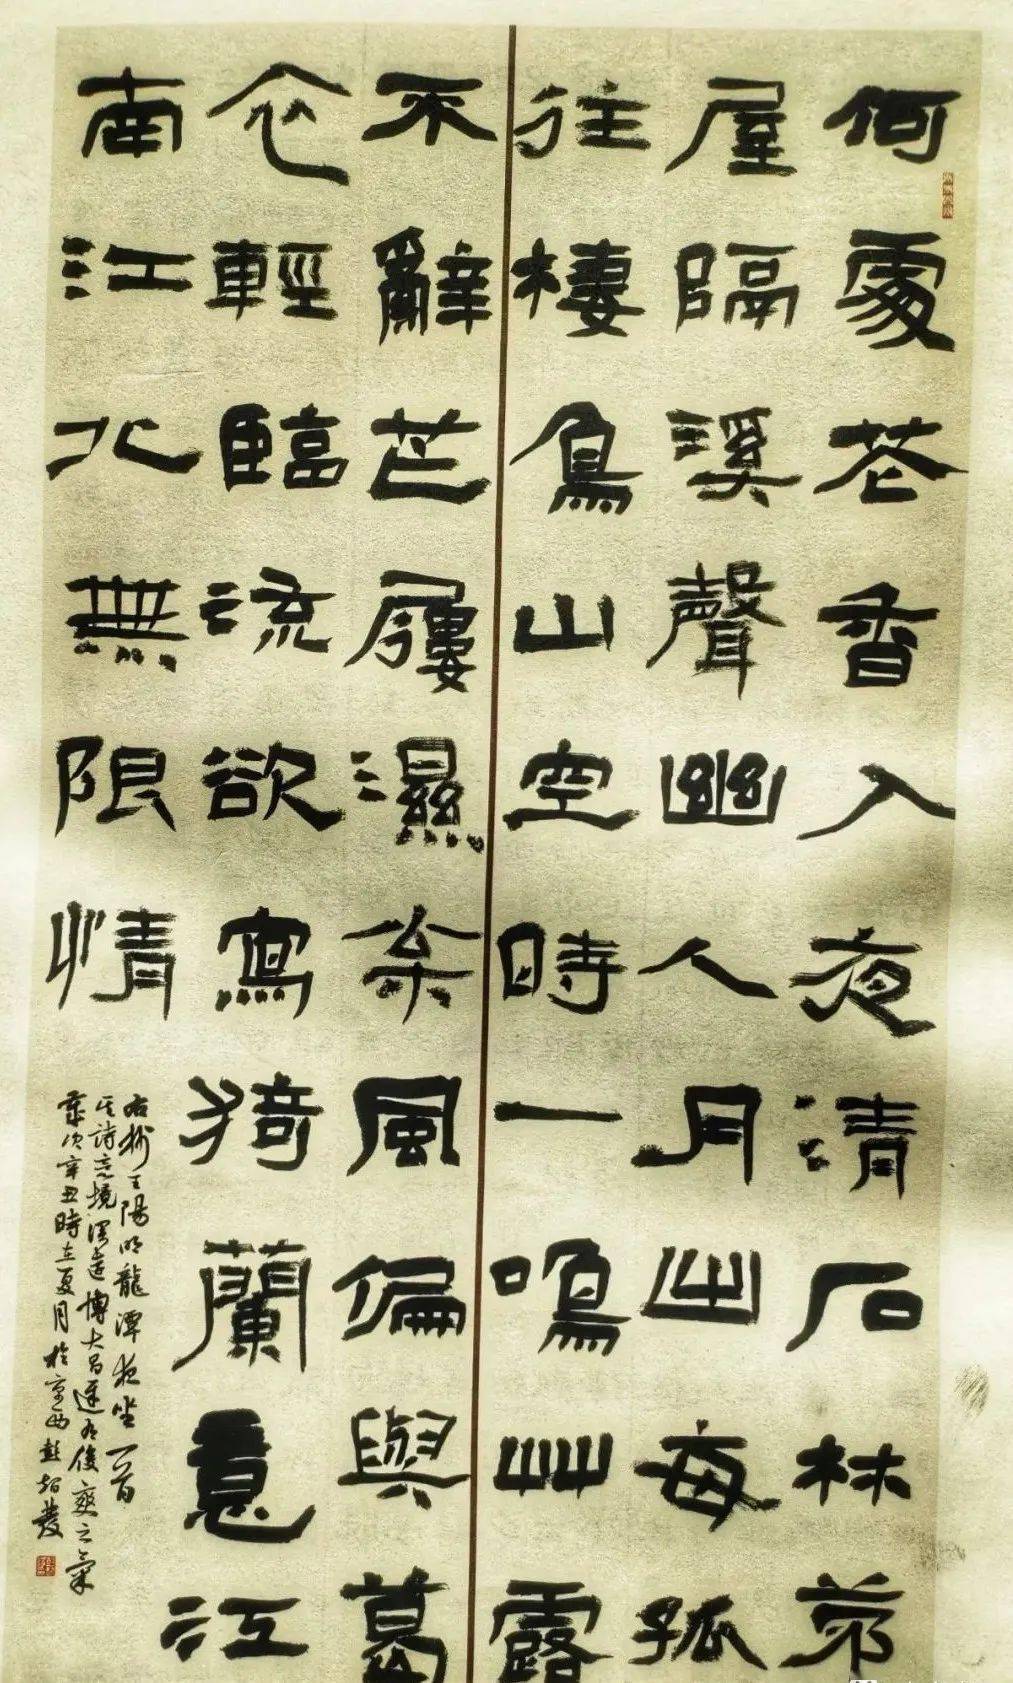 何處花香入夜清石林茅
屋隔溪聲幽人月出每孤
往棲鳥山空時一鳴艸露
不辭芒屨濕枩風偏與葛
衣輕臨流欲寫猗蘭意江
南江北無限情
右抄王陽明龍潭夜坐一首
其詩意境深遠博大昌達有俊爽之氣
歲次辛丑時在夏月於京西彭